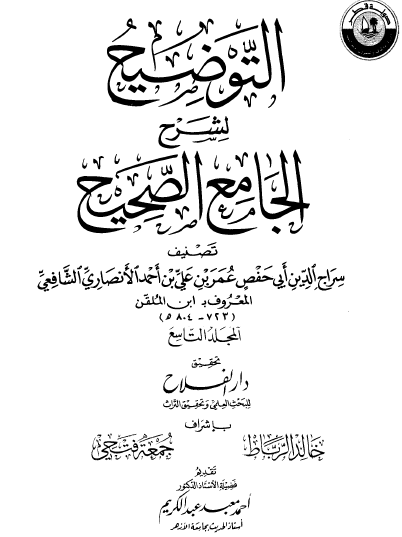 دولة قطر
التوضيح
لشرح
الجامع الصحيح
تصنيف
سراج الدين أبي حفص عمر بن علي بن أحمد الأنصاري الشافعي
المعروف بـ ابن الملقن
(٧٢٣ - ٨٠٤ هـ)
المجلد التاسع
تحقيق
دار الفلاح
للبحث العلمي وتحقيق التراث
بإشراف
خالد الرباط جمعة فتحي
تقديم
فضيلة الأستاذ الدكتور
أحمد معبد عبد الكريم
أستاذ الحديث بجامعة الأزهر